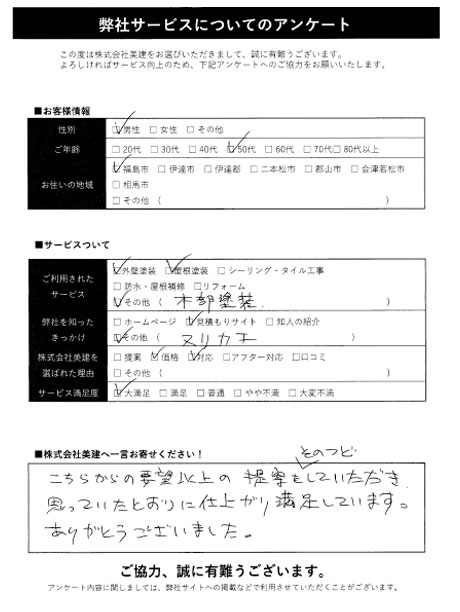 弊社サービスについてのアンケート
この度は株式会社美建をお選びいただきまして、誠に有難うございます。
よろしければサービス向上のため、下記アンケートへのご協力をお願いいたします。
■お客様情報
性別 ☑男性 □女性 □その他
ご年齢 □20代 □30代 □40代 ☑50代 □60代 □70代 □80代以上
お住いの地域 ☑福島市 □伊達市 □伊達郡 □二本松市 □郡山市 □会津若松市
□相馬市
□その他 ( )
■サービスついて
ご利用されたサービス ☑外壁塗装 ☑屋根塗装 □シーリング・タイル工事
□防水・屋根補修 □リフォーム
☑その他 ( 木部塗装 )
弊社を知ったきっかけ □ホームページ ☑見積もりサイト □知人の紹介
☑その他 ( ヌリカエ )
株式会社美建を選ばれた理由 □提案 ☑価格 ☑対応 □アフター対応 □口コミ
□その他 ( )
サービス満足度 ☑大満足 □満足 □普通 □やや不満 □大変不満
■株式会社美建へ一言お寄せください!
そのつど
こちらからの要望以上の 提案をしていただき
思っていたとおりに仕上がり満足しています。
ありがとうございました。
ご協力、誠に有難うございます。
アンケート内容に関しましては、弊社サイトへの掲載などで利用させていただくことがございます。